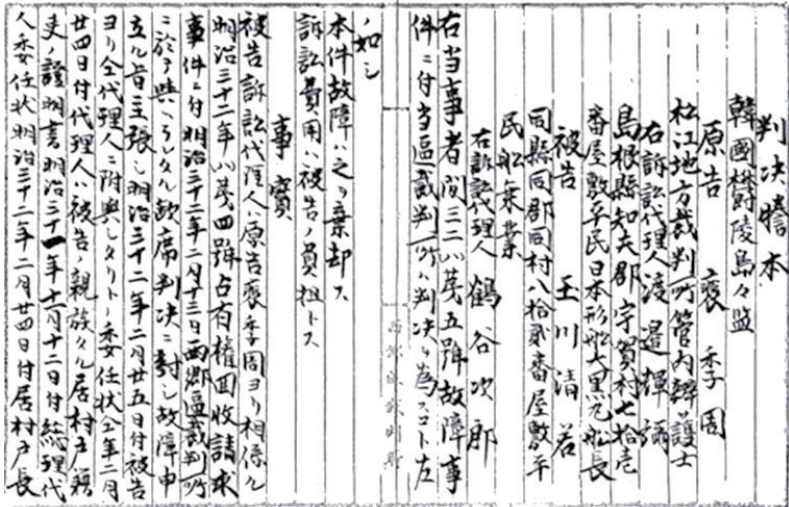 判決謄本
韓國欝陵島々監
原告 裵季周
松江地方裁判所管内辯護士
右訴訟代理人渡邉輝
島根縣知夫郡宇賀村七拾壱
番屋敷平民日本形船大黒丸船長
被告 玉川清若
同縣同郡同村八拾貳番屋敷平
民船乗業
右訴訟代理人 鶴谷次郎
右当事者間三二(ハ)第五号故障事
件ニ付当區裁判所ハ判决ヲ為スコト左
ノ如シ
本件故障ハ之ヲ棄却ス
訴訟費用ハ被告ノ負担トス
事實
被告訴訟代理人ハ原告裵季周ヨリ相係ル
明治三十二年(ハ)第四号占有權回收請求
事件ニ付明治三十二年二月十三日西郷區裁判所
ニ於テ與ヘラレタル欽席判决ニ對シ故障申
立ル旨主張シ明治三十二年二月廿五日付被告
ヨリ仝代理人ニ附與シタリトノ委任状仝年二月
廿四日付代理人ハ被告ノ親族タル居村戸籍
吏ノ證明書明治三十一年十月十二日付総理代
人委任状明治三十二年二月廿四日付居村戸長